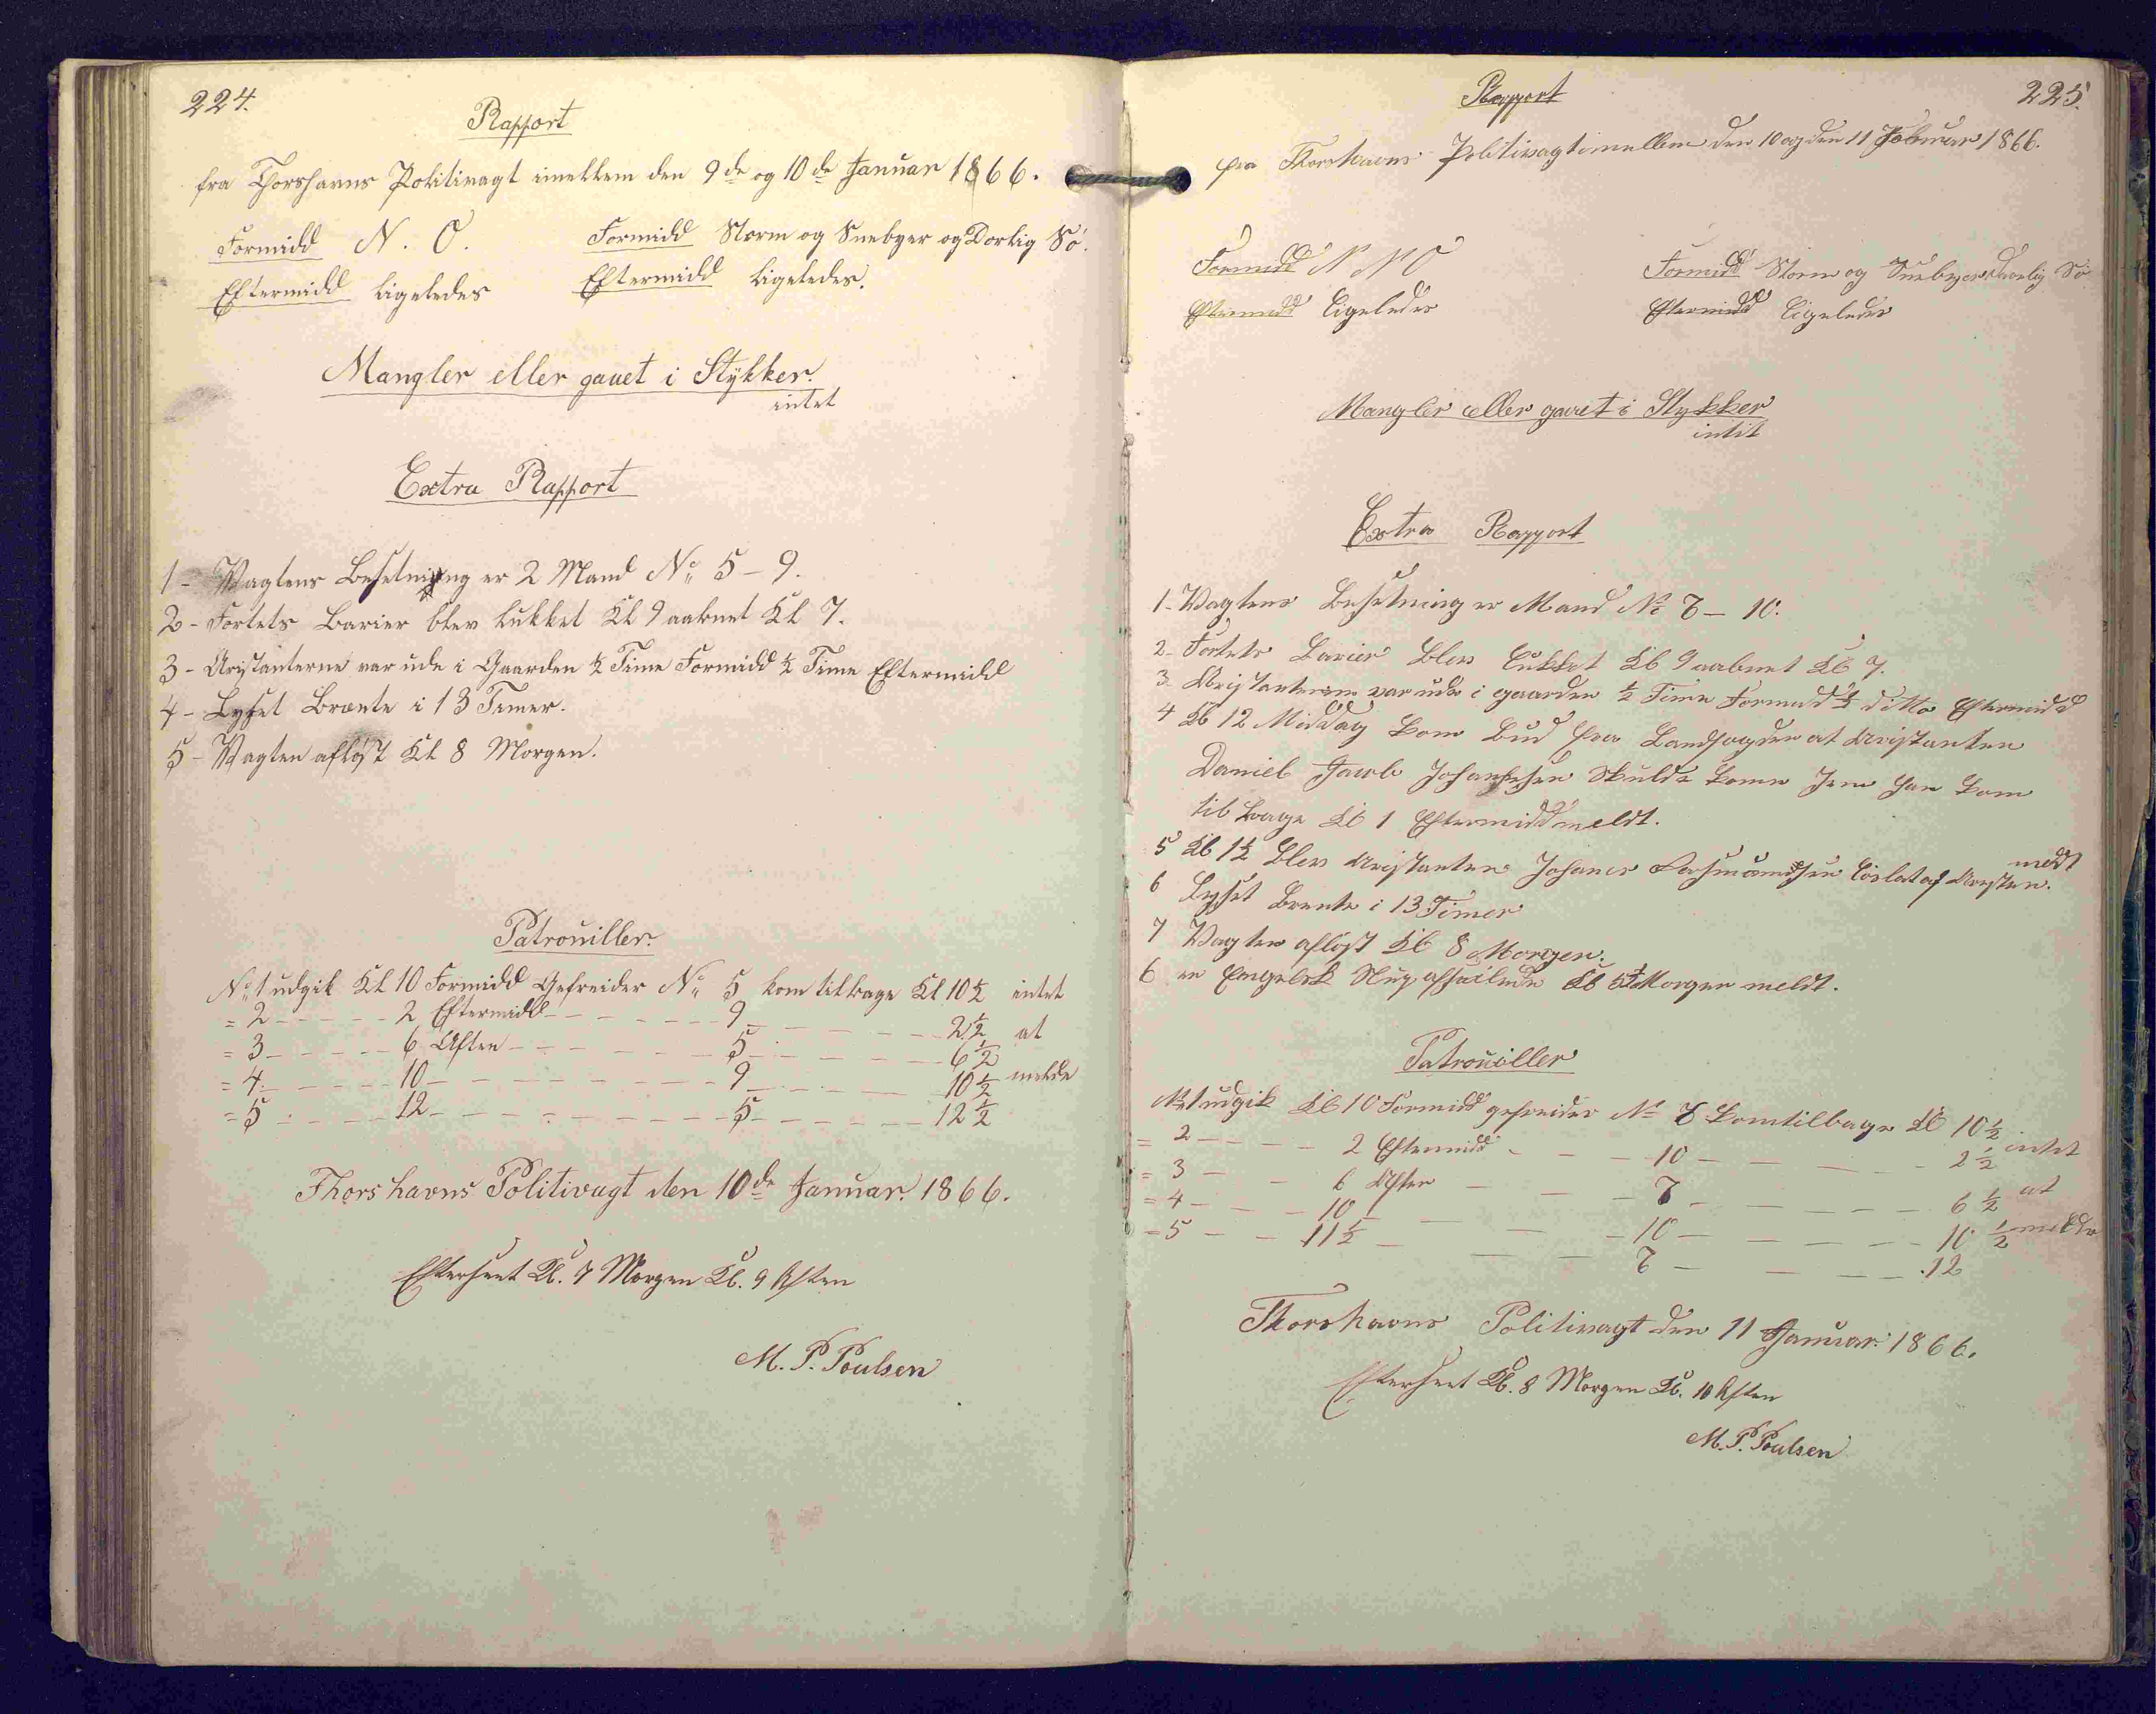 224.
Rapport
fra Thorshavns Politivagt imellem den 9de og 10de Januar 1866.
Formidd N. O. Formidd Storm og Snebyer og Dorlig Sö.
Eftermidd ligeledes Eftermidd ligeledes.
Mangler eller gaaet i Stÿkker.
intet
Extra Rapport
1 - Vagtens Besetning er 2 Mand No 5 - 9.
2 - Fortets Barier blev lukket Kl 9 aabnet Kl 7.
3 - Aristanterne var ude i Gaarden ½ Time Formidd ½ Time Eftermidd
4 - Lyset Brænte i 13 Timer.
5 - Vagten aflöst Kl 8 Morgen.
Patrouiller.
No 1 udgik Kl 10 Formidd Gefreider No 5 kom tilbage Kl 10½ intet
= 2 - - - - - 2 Eftermidd - - - - - - 9 - - - - - 2½ at
= 3 - - - - - 6 Aften - - - - - - 5 - - - - - 6½
= 4 - - - - - 10 - - - - - - - - 9 - - - - - 10½ melde
= 5 - - - - - 12 - - - - - - - - 5 - - - - - 12½
Thorshavns Politivagt den 10de Januar. 1866.
Efterseet Kl. 7 Morgen Kl. 9 Aften
M. P. Poulsen
225.
Rapport
fra Thorshavns Politivagt imellem den 10 og den 11 Februar 1866.
Formidd N N O Formidd Storm og Snebyer Daarlig Sö
Eftermidd ligeledes Eftermidd ligeledes
Mangler eller gaaet i Stykker
intit
Extra Rapport
1 - Vagtens Besetning er Mand No 8 - 10.
2 - Fortets Barier blev lukket Kl 9 aabnet Kl 7.
3 - Aristanterne var ude i gaarden ½ Time Formidd ½ ditto Eftermidd
4 Kl 12 Middag kom bud fra Landfogden at Aristanten
Daniel Jacob Johannesen skulde komme Jem Han kom
tilbage Kl 1 Eftermidd meldt.
5 Kl 1½ blev Aristanten Johanes löslat af Aresten. meldt
6 Lyset Brente i 13 Timer
7 Vagten aflöst Kl 8 Morgen.
6 en Engelsk Slup afseilede Kl Morgen meldt.
Patrouiller
No 1 udgik Kl 10 Formidd gefreider No 8 kom tilbage Kl 10½ intet
= 2 - - - - 2 Eftermidd - - - 10 - - - - - 2½
= 3 - - 6 Aften - - - 8 - - - - - 6½ at
= 4 - - - 10 - - - 10 - - - - - 10½ melde
= 5 - - - 11½ - - - 8 - - - - - 12
Thorshavns Politivagt den 11 Januar. 1866.
Efterseet Kl. 8 Morgen Kl. 10 Aften
M. P. Poulsen